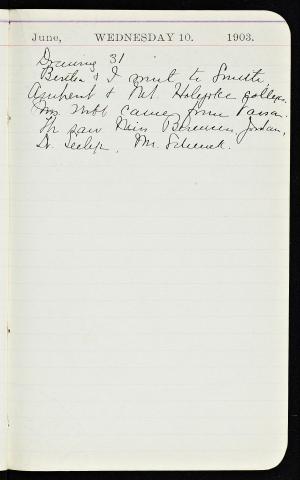 June, WEDNESDAY 10. 1903.
Drawing 31
Bertha & I went to Smith,
Amherst & Mt. Holyoke colleges.
Mrs. came from Vassar.
We saw Miss Jordan,
Dr. Seelye, Mr. Schenck.